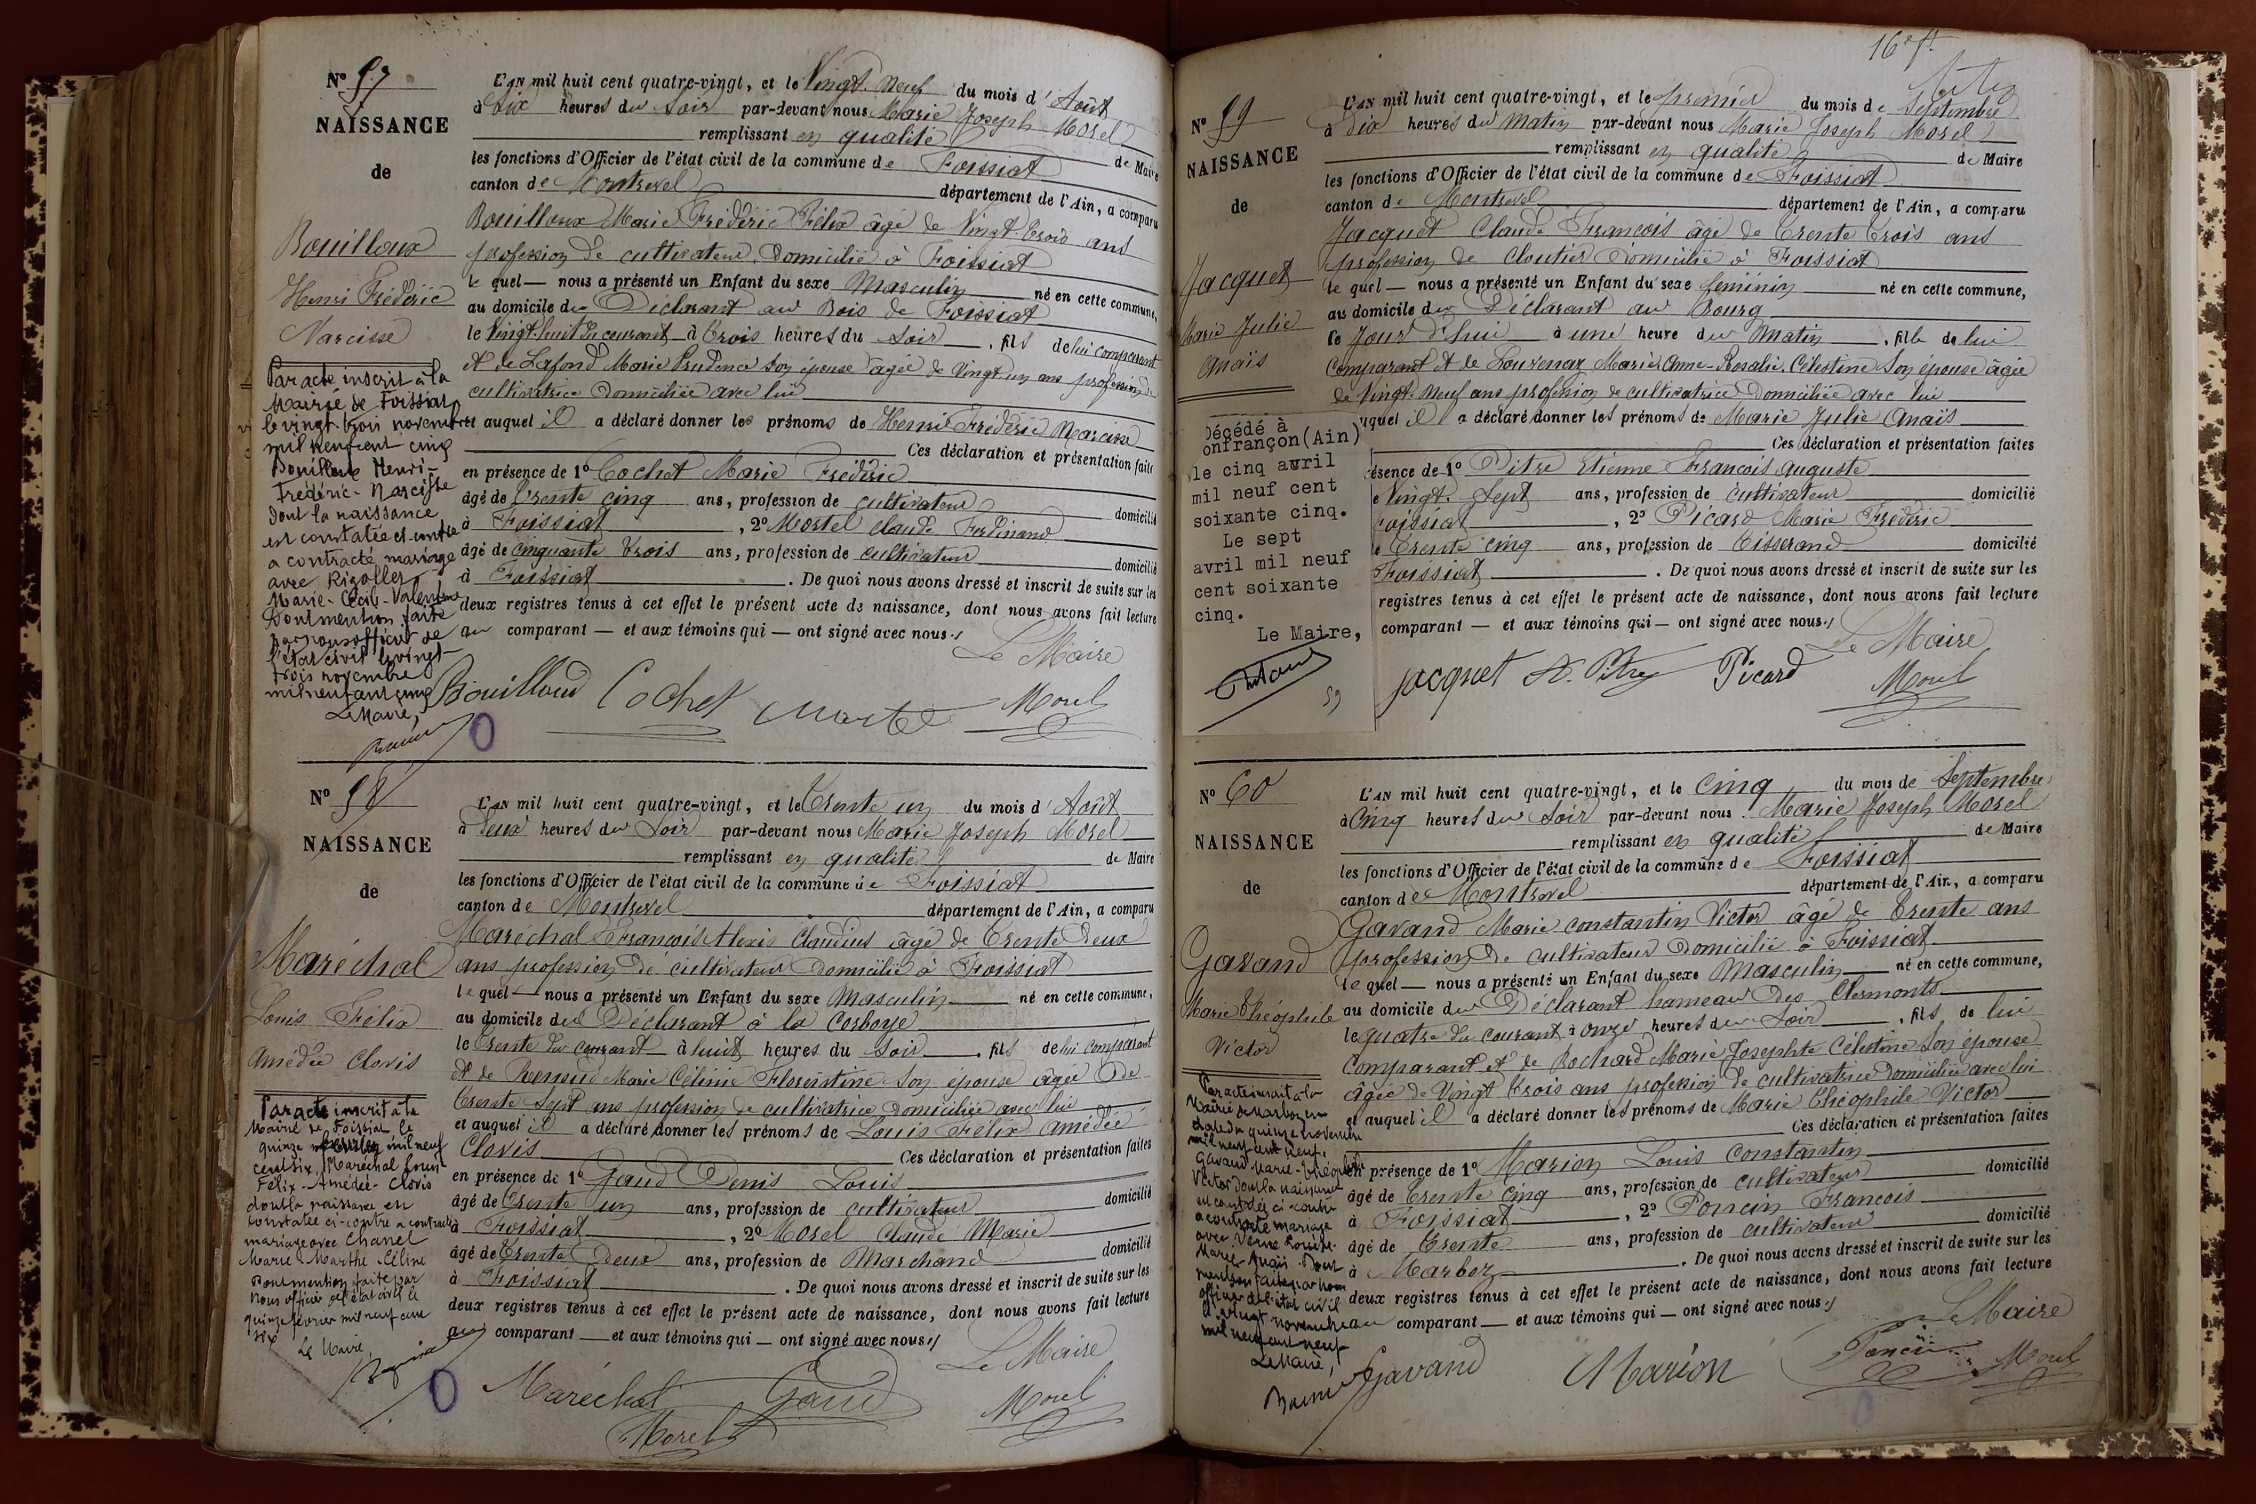 Nº 57
NAISSANCE
de
Bouilloux
Henri Frédéric
Narcisse
Par acte inscrit à la
Mairie de Foissiat
le vingt-trois novembre
mil neuf cent cinq
Bouilloux Henri-
Frédéric-Narcisse
dont la naissance
est constatée ci-contre
a contracté mariage
avec Rigollet
Marie-Cécile-Valentine
Dont mention faite
par nous officier de
l'état civil le vingt-
trois novembre
mil neuf cent cinq
Le Maire,
L'AN mil huit cent quatre-vingt, et le Vingt-Neuf du mois d'Août
à Six heures du Soir par-devant nous Marie Joseph Morel
remplissant en qualité de Maire
les fonctions d'Officier de l'état civil de la commune de Foissiat
canton de Montrevel département de l'Ain, a comparu
Bouilloux Marie Frédéric Félix âgé de Vingt-trois ans
profession de cultivateur Domicilié à Foissiat
lequel — nous a présenté un Enfant du sexe Masculin né en cette commune,
au domicile du Déclarant au Bois de Foissiat
le Vingt-huit du courant à trois heures du Soir . fils de lui comparant
et de Lafond Marie Prudence son épouse âgée de Vingt un ans profession de
cultivatrice Domiciliée avec lui
et auquel il a déclaré donner les prénoms de Henri Frédéric Narcisse
Ces déclaration et présentation faites
en présence de 1º Cochet Marie Frédéric
âgé de trente cinq ans, profession de cultivateur domicilié
à Foissiat , 2º Mortel claude Ferdinand
âgé de cinquante trois ans, profession de cultivateur domicilié
à Foissiat . De quoi nous avons dressé et inscrit de suite sur les
deux registres tenus à cet effet le présent acte de naissance, dont nous avons fait lecture
au comparant — et aux témoins qui — ont signé avec nous./
Le Maire
Bouilloud Cochet Martel Morel
Nº 58
NAISSANCE
de
Maréchal
Louis Félix
Amédée Clovis
Par acte inscrit à la
Mairie de Foissiat le
quinze février mil neuf
cent six, Maréchal Louis
Félix-Amédée-Clovis
dont la naissance est
constatée ci-contre a contracté
mariage avec Chanel
Marie-Marthe-Céline
Dont mention faite par
nous officier de l'état civil le
quinze février mil neuf cent
six
Le Maire,
L'AN mil huit cent quatre-vingt, et le trente un du mois d'Août
à deux heures du Soir par-devant nous Marie Joseph Morel
remplissant en qualité de Maire
les fonctions d'Officier de l'état civil de la commune de Foissiat
canton de Montrevel département de l'Ain, a comparu
Maréchal François Alexis Claudius âgé de trente deux
ans profession de cultivateur Domicilié à Foissiat
lequel — nous a présenté un Enfant du sexe Masculin né en cette commune,
au domicile du Déclarant à la Corboye
le trente du courant à huit heures du Soir . fils de lui comparant
et de Marie Célinie Florentine son épouse âgée de
trente sept ans profession de cultivatrice Domiciliée avec lui
et auquel il a déclaré donner les prénoms de Louis Félix Amédée
Clovis Ces déclaration et présentation faites
en présence de 1º Gaud Denis Louis
âgé de trente un ans, profession de cultivateur domicilié
à Foissiat , 2º Morel Claude Marie
âgé de trente deux ans, profession de Marchand domicilié
à Foissiat . De quoi nous avons dressé et inscrit de suite sur les
deux registres tenus à cet effet le présent acte de naissance, dont nous avons fait lecture
au comparant — et aux témoins qui — ont signé avec nous./
Le Maire
Maréchal Gaud Morel
Morel
16e ft
Nº 59
NAISSANCE
de
Jacquet
Marie Julie
Anaïs
Décédé à
onfrançon(Ain)
le cinq avril
mil neuf cent
soixante cinq.
Le sept
avril mil neuf
cent soixante
cinq.
Le Maire,
59
L'AN mil huit cent quatre-vingt, et le premier du mois de Septembre
à dix heures du matin par-devant nous Marie Joseph Morel
remplissant en qualité de Maire
les fonctions d'Officier de l'état civil de la commune de Foissiat
canton de Montrevel département de l'Ain, a comparu
Jacquet Claude François âgé de trente trois ans
profession de Cloutier Domicilié à Foissiat
lequel — nous a présenté un Enfant du sexe féminin né en cette commune,
au domicile du Déclarant au Bourg
le Jour d'hui à une heure du Matin . fille de lui
Comparant et de Marie Anne-Rosalie, Célestine Son épouse âgée
de Vingt-Neuf ans profession de cultivatrice Domiciliée avec lui
uquel il a déclaré donner les prénoms de Marie Julie Anaïs
Ces déclaration et présentation faites
ésence de 1º Pitre Etienne François auguste
e Vingt-Sept ans, profession de cultivateur domicilié
Foissiat , 2º Picard Marie Frédéric
e Trente cinq ans, profession de Tisserand domicilié
Foissiat . De quoi nous avons dressé et inscrit de suite sur les
registres tenus à cet effet le présent acte de naissance, dont nous avons fait lecture
comparant — et aux témoins qui — ont signé avec nous./
Le Maire
Jacquet Picard Morel
Nº 60
NAISSANCE
de
Gavand
Marie Théophile
Victor
Par acte inscrit à la
Mairie de Marboz en
date du quinze novembre
mil neuf cent neuf,
Gavand Marie-Théophile
Victor dont la naissance
est constatée ci-contre
a contracté mariage
avec Verne Louise-
Marie Anaïs. Dont
mention faite par nous
officier de l'état civil
le vingt novembre
mil neuf cent neuf
Le Maire,
L'AN mil huit cent quatre-vingt, et le cinq du mois de Septembre
à Cinq heures du Soir par-devant nous Marie Joseph Morel
remplissant en qualité de Maire
les fonctions d'Officier de l'état civil de la commune de Foissiat
canton de Montrevel département de l'Ain, a comparu
Gavand Marie constantin Victor âgé de trente ans
profession de cultivateur Domicilié à Foissiat
lequel — nous a présenté un Enfant du sexe Masculin né en cette commune,
au domicile du Déclarant hameau des Clermonts
le quatre du courant à onze heures du Soir . fils de lui
Comparant et de Bochard Marie Josephte Célestine Son épouse
âgée de Vingt trois ans profession de cultivatrice Domiciliée avec lui
et auquel il a déclaré donner les prénoms de Marie Théophile Victor
Ces déclaration et présentation faites
en présence de 1º Marion Louis Constantin
âgé de trente cinq ans, profession de cultivateur domicilié
à Foissiat , 2º Poncin François
âgé de trente ans, profession de cultivateur domicilié
à Marboz . De quoi nous avons dressé et inscrit de suite sur les
deux registres tenus à cet effet le présent acte de naissance, dont nous avons fait lecture
au comparant — et aux témoins qui — ont signé avec nous./
Le Maire
Gavand Marion Poncin Morel